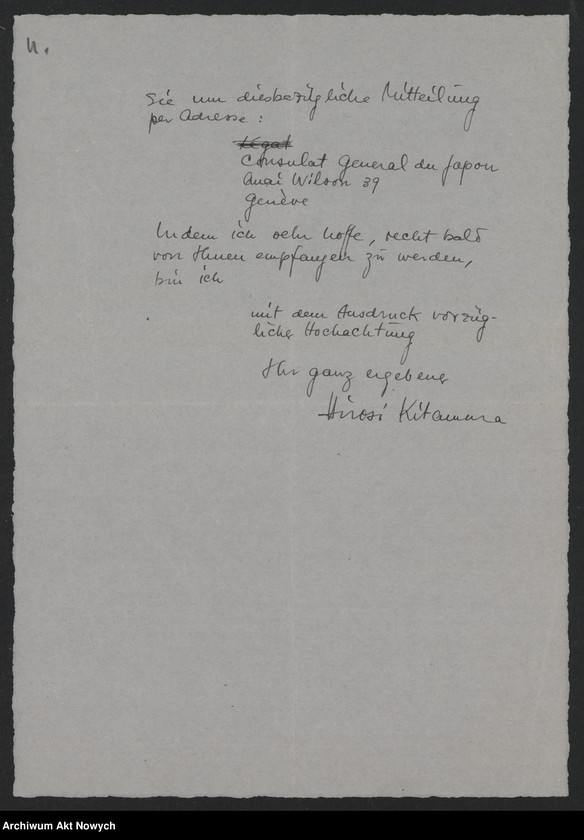 4.
Sie um diesbezügliche Mitteilung
per Adresse:
Légat
Consulat General du Japon
Quai Wilson 39
Genève
Indem ich sehr hoffe, recht bald
von Ihnen empfangen zu werden,
bin ich
mit dem Ausdruck vorzüg-
licher Hochachtung
Ihr ganz ergebener
Hirosi Kitamura
Archiwum Akt Nowych